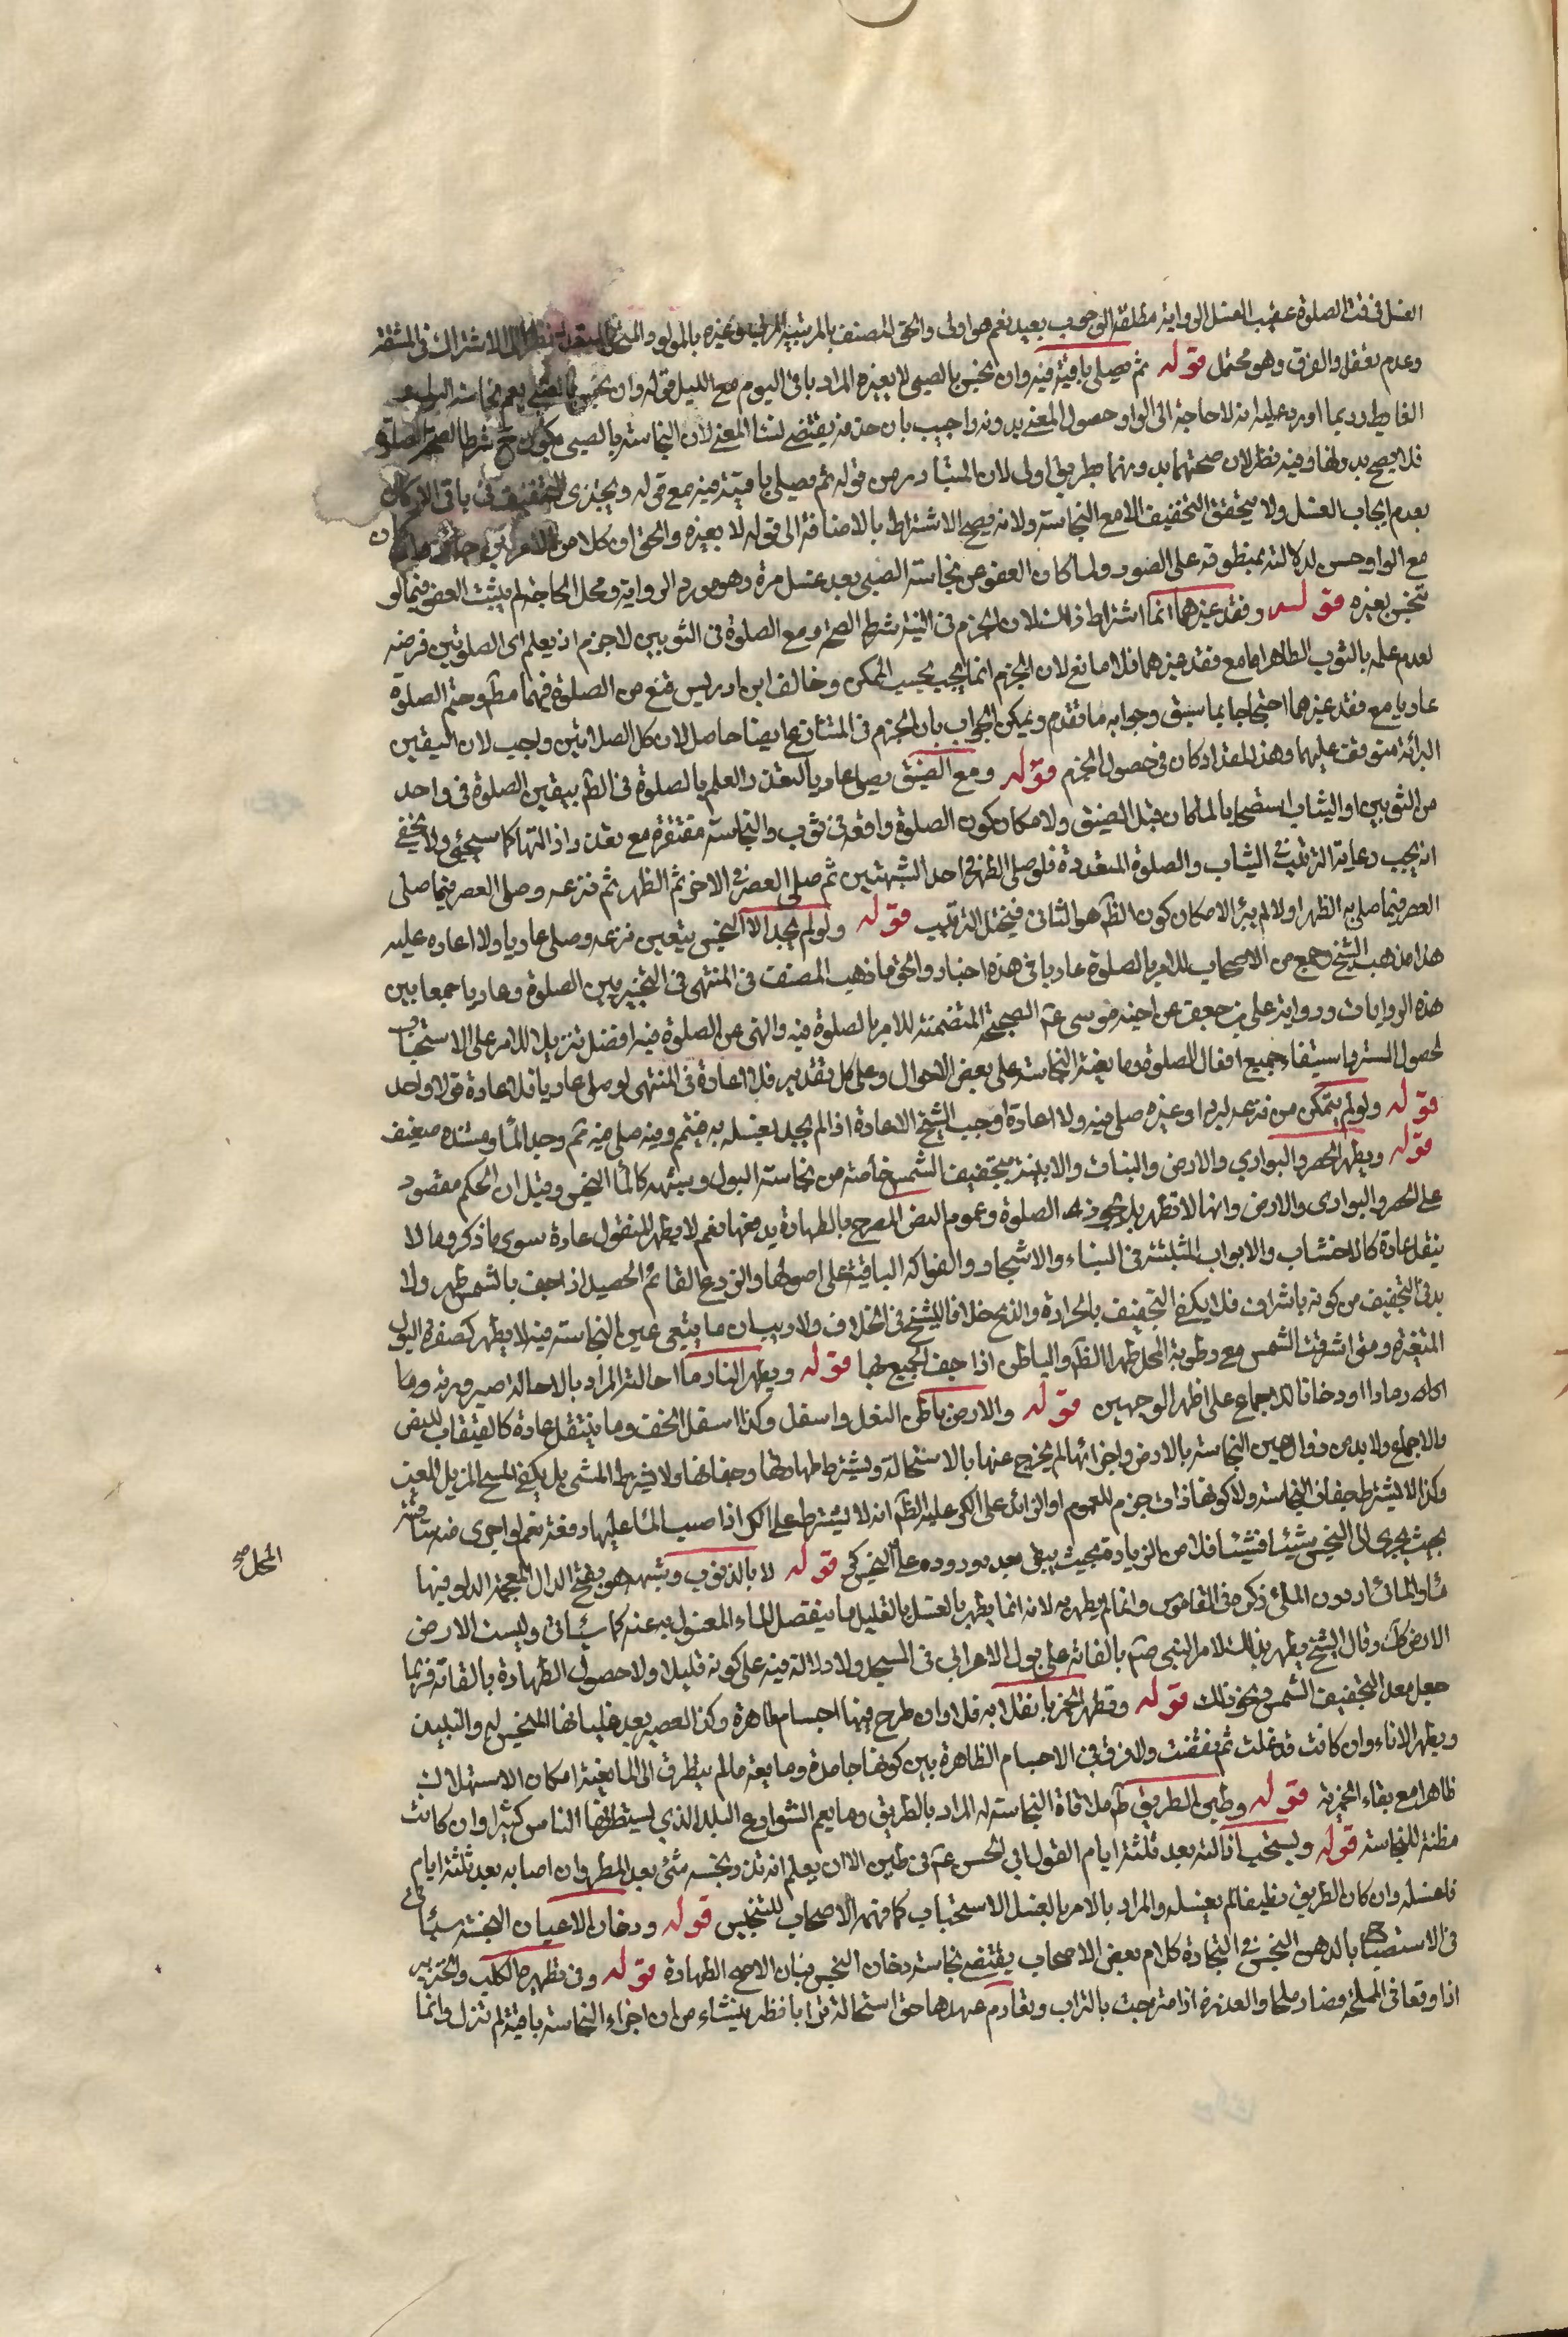 الغسل في وقت الصلوة عقيب الغسل الرواية مطلقة الوجوب بعيد نعم هو اولى والحق المصنف بالمربية المربي وغيره بالمولود المتعدد نظرا الى الاشتراك في المشقة
وعدم تعقل الفرق وهو محتمل قوله ثم يصلي باقيته فيه وان نجس بالصبي لا بغيره المراد باقي اليوم مع الليل قوله وان نجس بالصبي يعم نجاسته البول
الغايط وربما اورد عليه انه لا حاجة الى الواو حصول المعنى بدونه واجيب بان حذفه يقتضي فساد المعنى لان النجاسة بالصبي يكون ح شرط الصحة الصلوة
فلا يصح بدونها وفيه نظر لان صحتها بدونها بطريق اولى لان المتبادر من قوله ثم يصلي باقيته فيه مع قوله ويجتزى التخفيف في باقي الازمان
بعدم ايجاب الغسل ولا يتحقق التخفيف الا مع النجاسة ولانه يصح الاشتراط بالاضافة الى قوله لا بغيره والحق ان كلا من الامرين جائز وان كان
مع الواو حسن لدلالته بمنطوقه على الصور ولما كان العفو عن نجاسة الصبي بعد غسل مرة وهو مورد الرواية ومحل الحاجة لم يثبت العفو فيما لو
تنجس بغيره قوله وفقد غيرهما انما اشترط ذلك لان الجزم في النية شرط الصحة ومع الصلوة في الثوبين لا جزم اذ يعلم اى الصلوتين فرضه
لعدم علمه بالثوب الطاهر اما مع فقد غيرهما فلا مانع لان الجزم انما يجب بحسب الممكن وخالف ابن ادريس فمنع من الصلوة فيهما مطـ وحتم الصلوة
عاريا مع فقد غيرهما احتجاجا بما سبق وجوابه ما تقدم ويمكن الجواب بان الجزم في المتنازع ايضا حاصل لان كل الصلاتين واجب لان اليقين
البرائة متوقف عليهما وهذا المقدار كان في حصول الجزم قوله ومع الضيق يصلي عاريا لتعذر العلم بالصلوة في الطـ بيقين الصلوة في واحد
من الثوبين او الثياب استصحابا لما كان قبل الضيق ولا مكان كون الصلوة واقعة في ثوب والنجاسة مغتفرة مع تعذر ازالتها كما سيجئ ولا يخفى
انه يجب رعاية الترتيب في الثياب والصلوة المتعددة فلو صلى الظهر في احد الشبهتين ثم صلى العصر في الاخر ثم الظهر ثم نزعه وصلى العصر فيما صلى
العصر فيما صلى به الظهر اولا لم يبرأ لا مكان كون الطـ هو الثاني فيختل الترتيب قوله ولو لم يجد الا النجس يتعين نزعه وصلى عاريا ولا اعادة عليه
هذا مذهب الشيخ وجمع من الاصحاب للامر بالصلوة عاريا في هذه اخبار والحق ما ذهب المصنف في المنتهى في التخيير بين الصلوة وعاريا جمعا بين
هذه الروايات ورواية علي بن جعفر عن اخيه موسى عم الصحيحة المتضمنة للامر بالصلوة فيه والنهي عن الصلوة فيه افضل تنزيلا للامر على الاستحباب
لحصول الستر باستيفاء جميع افعال الصلوة وما يغيثه النجاسة على بعض الاحوال وعلى كل تقدير فلا اعادة في المنتهى لو صلى عاريا فلا اعادة قولا واحد
قوله ولو لم يتمكن من نزعه لبرد او غيره صلى فيه ولا اعادة اوجب الشيخ الاعادة اذا لم يجد لغسله به فيتيمم وفيه صلى فيه ثم وجد الماء ومستنده ضعيف
قوله ويطهر الحصر والبواري والارض والنبات والابنية بتجفيف الشمس خاصة من نجاسة البول وشبهه كالماء النجس وقيل ان الحكم مقصور
على الحصر والبوارى والارض وانها لا تطهر بل يجوز الصلوة وعموم النص المصرح بالطهارة يدفعها نعم لا يطهر المنقول عادة سوى ما ذكر وما لا
ينقل عادة كالاخشاب والابواب المثبتة في البناء والاشجار والفواكه الباقية على اصولها والزرع القائم الحصيد اذا جف بالشمس طهر ولا
بد في التجفيف من كونه باشراف فلا يكفي التجفيف بالحرارة والريح خلافا للشيخ في الخلاف ولا ريب ان ما يبقى عين النجاسة فيه لا يطهر كصفرة البول
المتغيرة ومتى اشرقت الشمس مع رطوبة المحل طهر الظـ والباطن اذا جف الجميع بها قوله ويطهر النار ما احالته المراد بالاحالة صيرورته وما
رمادا او دخانا للاجماع على اظهر الوجهين قوله والارض باطن النعل واسفل وكذا اسفل الخف وما ينتقل عادة كالقبقاب للنص
والاجماع ولا بد من زوال عين النجاسة بالارض واجزائها لم يخرج عنها بالاستحالة ويشترط طهارتها وجفافها ولا يشترط المشى بل يكفى المسح المزيل للعين
وكذا لا يشترط جفاف النجاسة ولا كونها ذات جرم للعموم او الزائد على الكر عليه الظـ انه لا يشترط على الكل اذا صب الماء عليها دفعة نعم لو اجرى منه شيئا
بحيث يجرى الى النجس شيئا فشيئا فلا من الزيادة بحيث يبقى بعد وروده على النجس كر قوله لا بالذنوب وشبهه هو بفتح الذال المعجمة الدلو فيها
ماء او الملائى دون الملئى ذكره في القاموس وانما لم يطهر به لانه انما يطهر بالغسل بالقليل ما ينفصل الماء المغسول به عنه كما سياتي وليست الارض
الارض كك وقال الشيخ يطهر بذلك لامر النبي صم بالقائه على بول الاعرابي في المسجد ولا دلالة فيه على كونه قليلا ولا حصول الطهارة بالقائه فربما
جعل معدا لتجفيف الشمس ونحو ذلك قوله وتطهر الخمر بانقلابه خلا وان طرح فيها اجسام طاهرة وكذا العصير بعد غليانها المنجس لها والنبيذ
ويطهر الاناء وان كانت قد غلت ثم نقصت ولا فرق في الاجسام الطاهرة بين كونها جامدة ومايعة ما لم يتطرق الى المايعة امكان الاستهلاك
ظاهرا مع بقاء الخمرية قوله وطين الطريق طـ ملاقاة النجاسة له المراد بالطريق وما يعم الشوارع البلد الذي يستطرقها الناس كثيرا وان كانت
مظنة للنجاسة قوله ويستحب ازالته بعد ثلثة ايام القول ابي الحسن عم في طين الا ان يعلم انه قد نجسه شئ بعد المطر وان اصابه بعد ثلثة ايام
فاغسله وان كان الطريق نظيفا لم يغسله والمراد بالامر بالغسل الاستحباب كما فهمه الاصحاب للتنجيس قوله ودخان الاعيان النجسة سياتي
في الاستصباح بالدهن النجس في التجارة كلام بعض الاصحاب يقتضى نجاسة دخان النجس فبان الاصح الطهارة قوله وفي تطهير الكلب والخنزير
اذا وقعا في المملحة فصارا ملحا والعذرة اذا امتزجت بالتراب وتقادم عهدها حتى استحالة ترابا فظر ينشاء من ان اجزاء النجاسة باقية لم تزل وانما
المحل صح